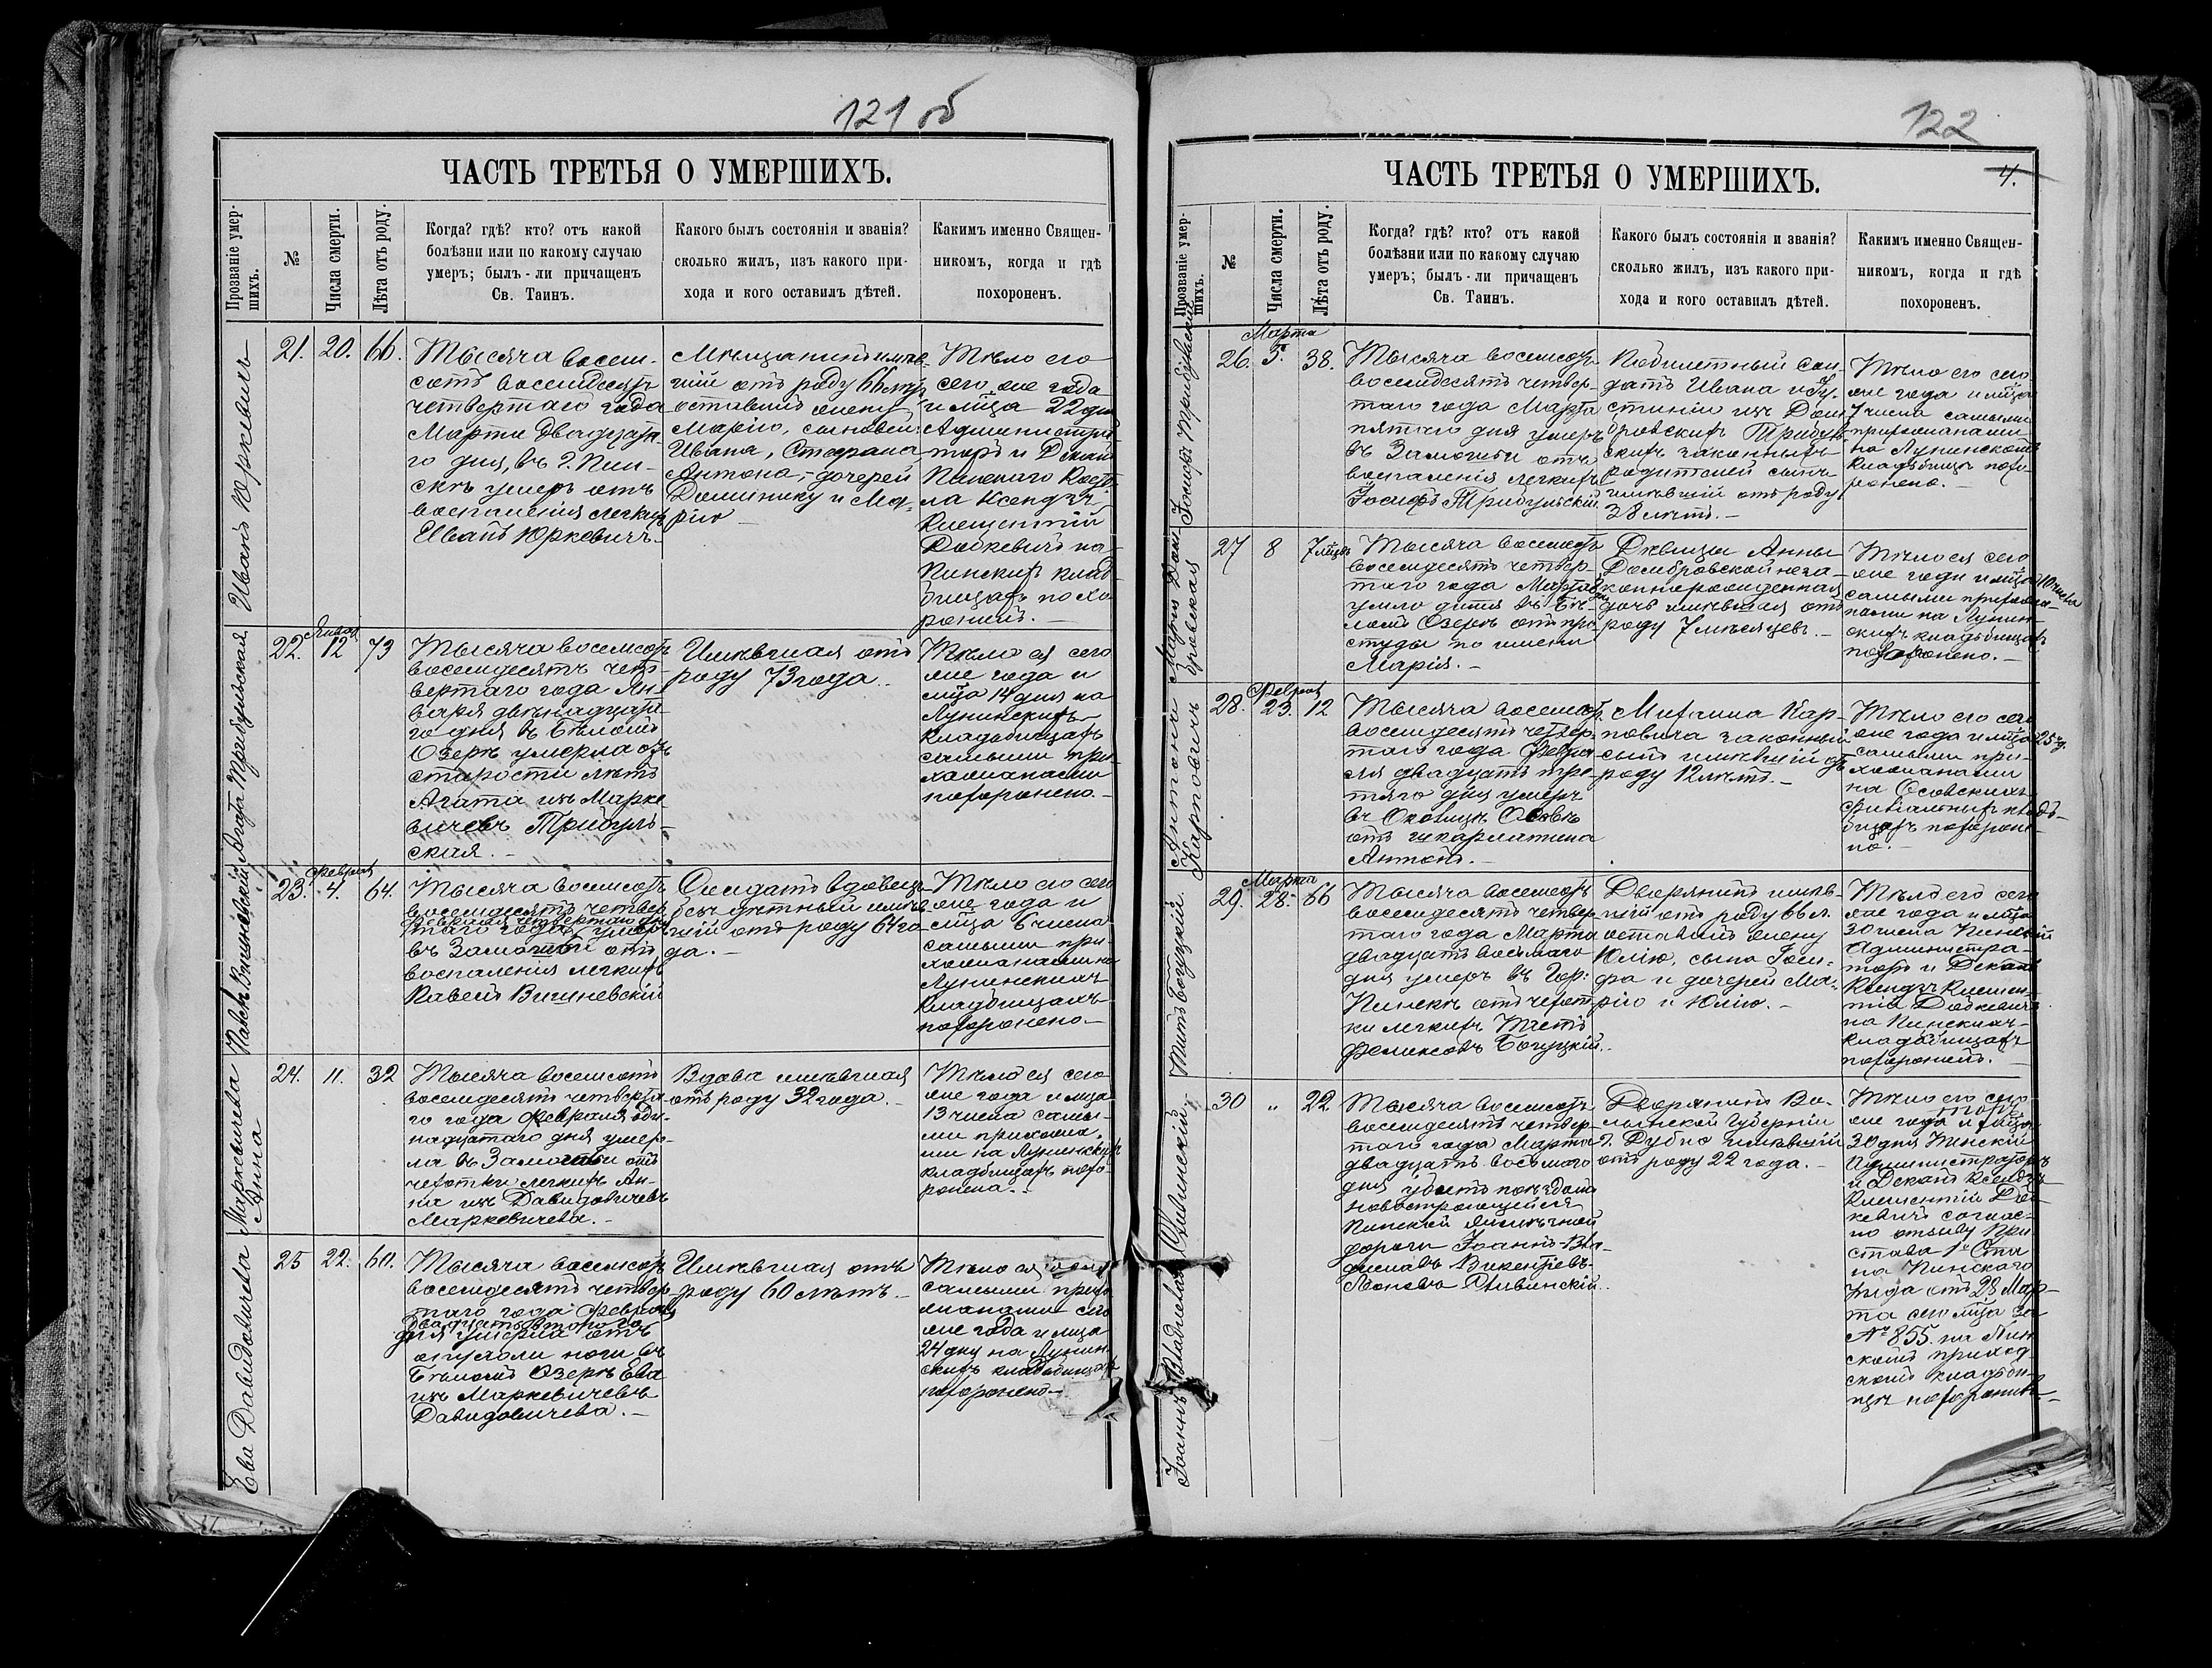 121 об
ЧАСТЬ ТРЕТЬЯ О УМЕРШИХЪ.
Прозваніе умер-
шихъ.
№
Числа смерти.
Лѣта отъ роду.
Когда? гдѣ? кто? отъ какой
болѣзни или по какому случаю
умеръ; былъ-ли причащенъ
Св. Таинъ.
Какого былъ состоянія и званія?
сколько жилъ, изъ какого при-
хода и кого оставилъ дѣтей.
Какимъ именно Священ-
никомъ, когда и гдѣ
похороненъ.
Иванъ Юркевичъ
21. 20. 66.
Тысяча восем-
сотъ восемдесятъ
четвертаго года
Марта двадцата-
го дня, въ г. Пин-
скѣ умеръ отъ
воспаленія легкихъ
Иванъ Юркевичъ.
Мѣщанинъ имѣв-
шій отъ роду 66 лѣтъ
оставилъ жену
Марію, сыновей:
Ивана, Стефана
Антона, - дочерей
Доминику и Ма-
рію
Тѣло его
сего же года
и мѣца 22 дня
Администра-
торъ и Деканъ
Пинскаго Косте-
ла Ксендзъ
Климентій
Додкевичъ на
Пинскихъ клад-
бищахъ похо-
ронилъ.
Агата Трибульская
22. Января 12 73
Тысяча восемсотъ
восемдесятъ чет-
вертаго года Ян-
варя двѣнадцата-
го дня въ Бѣломъ
Озерѣ умерла отъ
старости лѣтъ
Агата изъ Марке-
вичевъ Трибуль-
ская.
Имѣвшая отъ
роду 73 года.
Тѣло ея сего
же года и
мѣца 14 дня на
Лунинскихъ
кладбищахъ
самыми при-
хожанами
похоронено.
Павелъ Вишневскій
23. Февраля 4. 64.
Тысяча восемсотъ
восемдесятъ четвер-
таго года Февраля четвертаго дня умеръ
въ Замошьи отъ
воспаленія легкихъ
Павелъ Вишневскій
Солдатъ вдовецъ
безъ дѣтный имѣв-
шій отъ роду 64 го-
да.
Тѣло его сего
же года и
мѣца 6 числа
самыми при-
хожанами на
Лунинскихъ
кладбищахъ
похоронено
Маркевичева Анна
24. 11. 32
Тысяча восемсотъ
восемдесятъ четверта-
го года Февраля оди-
надцатаго дня умер-
ла въ Замошьи отъ
чехотки легкихъ Ан-
на изъ Давидовичевъ
Маркевичева.
Вдова имѣвшая
отъ роду 32 года.
Тѣло ея сего
же года и мѣца
13 числа самы-
ми прихожа-
ми на Лунинскихъ
кладбищахъ похо-
ронена.
Ева Давидовичева
25 22. 60.
Тысяча восемсотъ
восемдесятъ четвер-
таго года Февраля
двадцать втораго
дня умерла отъ
опухоли ноги въ
Бѣломъ Озерѣ Ева
изъ Маркевичевъ
Давидовичева.
Имѣвшая отъ
роду 60 лѣтъ.
Тѣло ея
самыми прихо-
жанами сего
же года и мѣца
24 дня на Лунин-
скихъ кладбищахъ
похоронено
122
4.
ЧАСТЬ ТРЕТЬЯ О УМЕРШИХЪ.
Прозваніе умер-
шихъ.
№
Числа смерти.
Лѣта отъ роду.
Когда? гдѣ? кто? отъ какой
болѣзни или по какому случаю
умеръ; былъ-ли причащенъ
Св. Таинъ.
Какого былъ состоянія и званія?
сколько жилъ, изъ какого при-
хода и кого оставилъ дѣтей.
Какимъ именно Священ-
никомъ, когда и гдѣ
похороненъ.
Іосифъ Трибульскій
26. Марта 5. 38.
Тысяча восемсотъ
восемдесятъ четвер-
таго года Марта
пятаго дня умеръ
въ Замошьи отъ
воспаленія легкихъ
Іосифъ Трибульскій.
Побилетный сол-
датъ Ивана и Ју-
стиніи изъ Дом-
бровскихъ Трибуль-
скихъ законныхъ
родителей сынъ
имѣвшій отъ роду
38 лѣтъ.
Тѣло его сего
же года и мѣца
7 числа самыми
прихожанами
на Лунинскомъ
кладбищѣ похо-
ронено.
Марія Дом-
бровская
27 8 7 мѣцевъ
Тысяча восемсотъ
восемдесятъ четвер-
таго года Марта 8 дня
умло дитя въ Бѣ-
ломъ Озерѣ отъ про-
студы по имени
Марія.
Дѣвицы Анны
Домбровской неза-
коннорожденная
дочь имѣвшая отъ
роду 7 мѣсяцевъ.
Тѣло ея сего
же года и мѣца 10 числа
самыми прихожа-
нами на Лунин-
скихъ кладбищахъ
похоронено.
Антонъ
Карповичъ
28. Февраля 23. 12
Тысяча восемсотъ
восемдесятъ четвер-
таго года Февра-
ля двадцать тре-
тяго дня умеръ
въ Околицѣ Осовѣ
отъ шкарлатина
Антонъ.
Михаила Кар-
повича законный
сынъ имѣвшій отъ
роду 12 лѣтъ.
Тѣло его сего
же года и мѣца 25 д.
самыми при-
хожанами
на Осовскихъ
Филіальныхъ клад-
бищахъ похороне-
но.
Титъ Богуцкій
29. Марта 28. 66
Тысяча восемсотъ
восемдесятъ четвер-
таго года Марта
двадцать восьмаго
дня умеръ въ Гор:
Пинскѣ отъ чехот-
ки легкихъ Титъ
Феликсовъ Богуцкій.
Дворянинъ имѣв-
шій отъ роду 66 л.
оставилъ жену
Юлію, сына Іоси-
фа и дочерей Ма-
рію и Юлію.
Тѣло его сего
же года и мѣца
30 числа Пинскій
Администра-
торъ и Деканъ
Ксендзъ Климен-
тій Додкевичъ
на Пинскихъ
кладбищахъ
похоронилъ.
Іоаннъ Владиславъ Сливинскій
30 " 22
Тысяча восемсотъ
восемдесятъ четвер-
таго года Марта
двадцать восьмаго
дня убитъ поѣздомъ
новостроющейся
Пинской желѣзной
дороги Іоаннъ-Вла-
диславъ Викентіевъ-
Леоновъ Сливинскій.
Дворянинъ Во-
лынской Губерніи
г. Дубно имѣвшій
отъ роду 22 года.
Тѣло его сего
же года и мѣца
30 дня Пинскій
Администраторъ
и Деканъ Ксендзъ
Климентій Дод-
кевичъ соглас-
но отзыву При-
става 1го Ста-
на Пинскаго
уѣзда отъ 29 Мар-
та сего мѣца за
№ 855. на Пин-
скомъ приход-
скомъ кладби-
щѣ похоронилъ